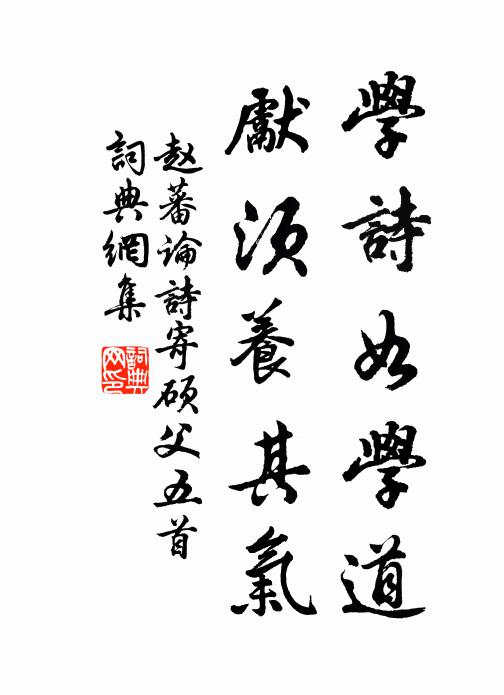 學詩如學道
獻須養其氣
赵蕃論詩寄硕父五首
詞典網集
詞典
网印